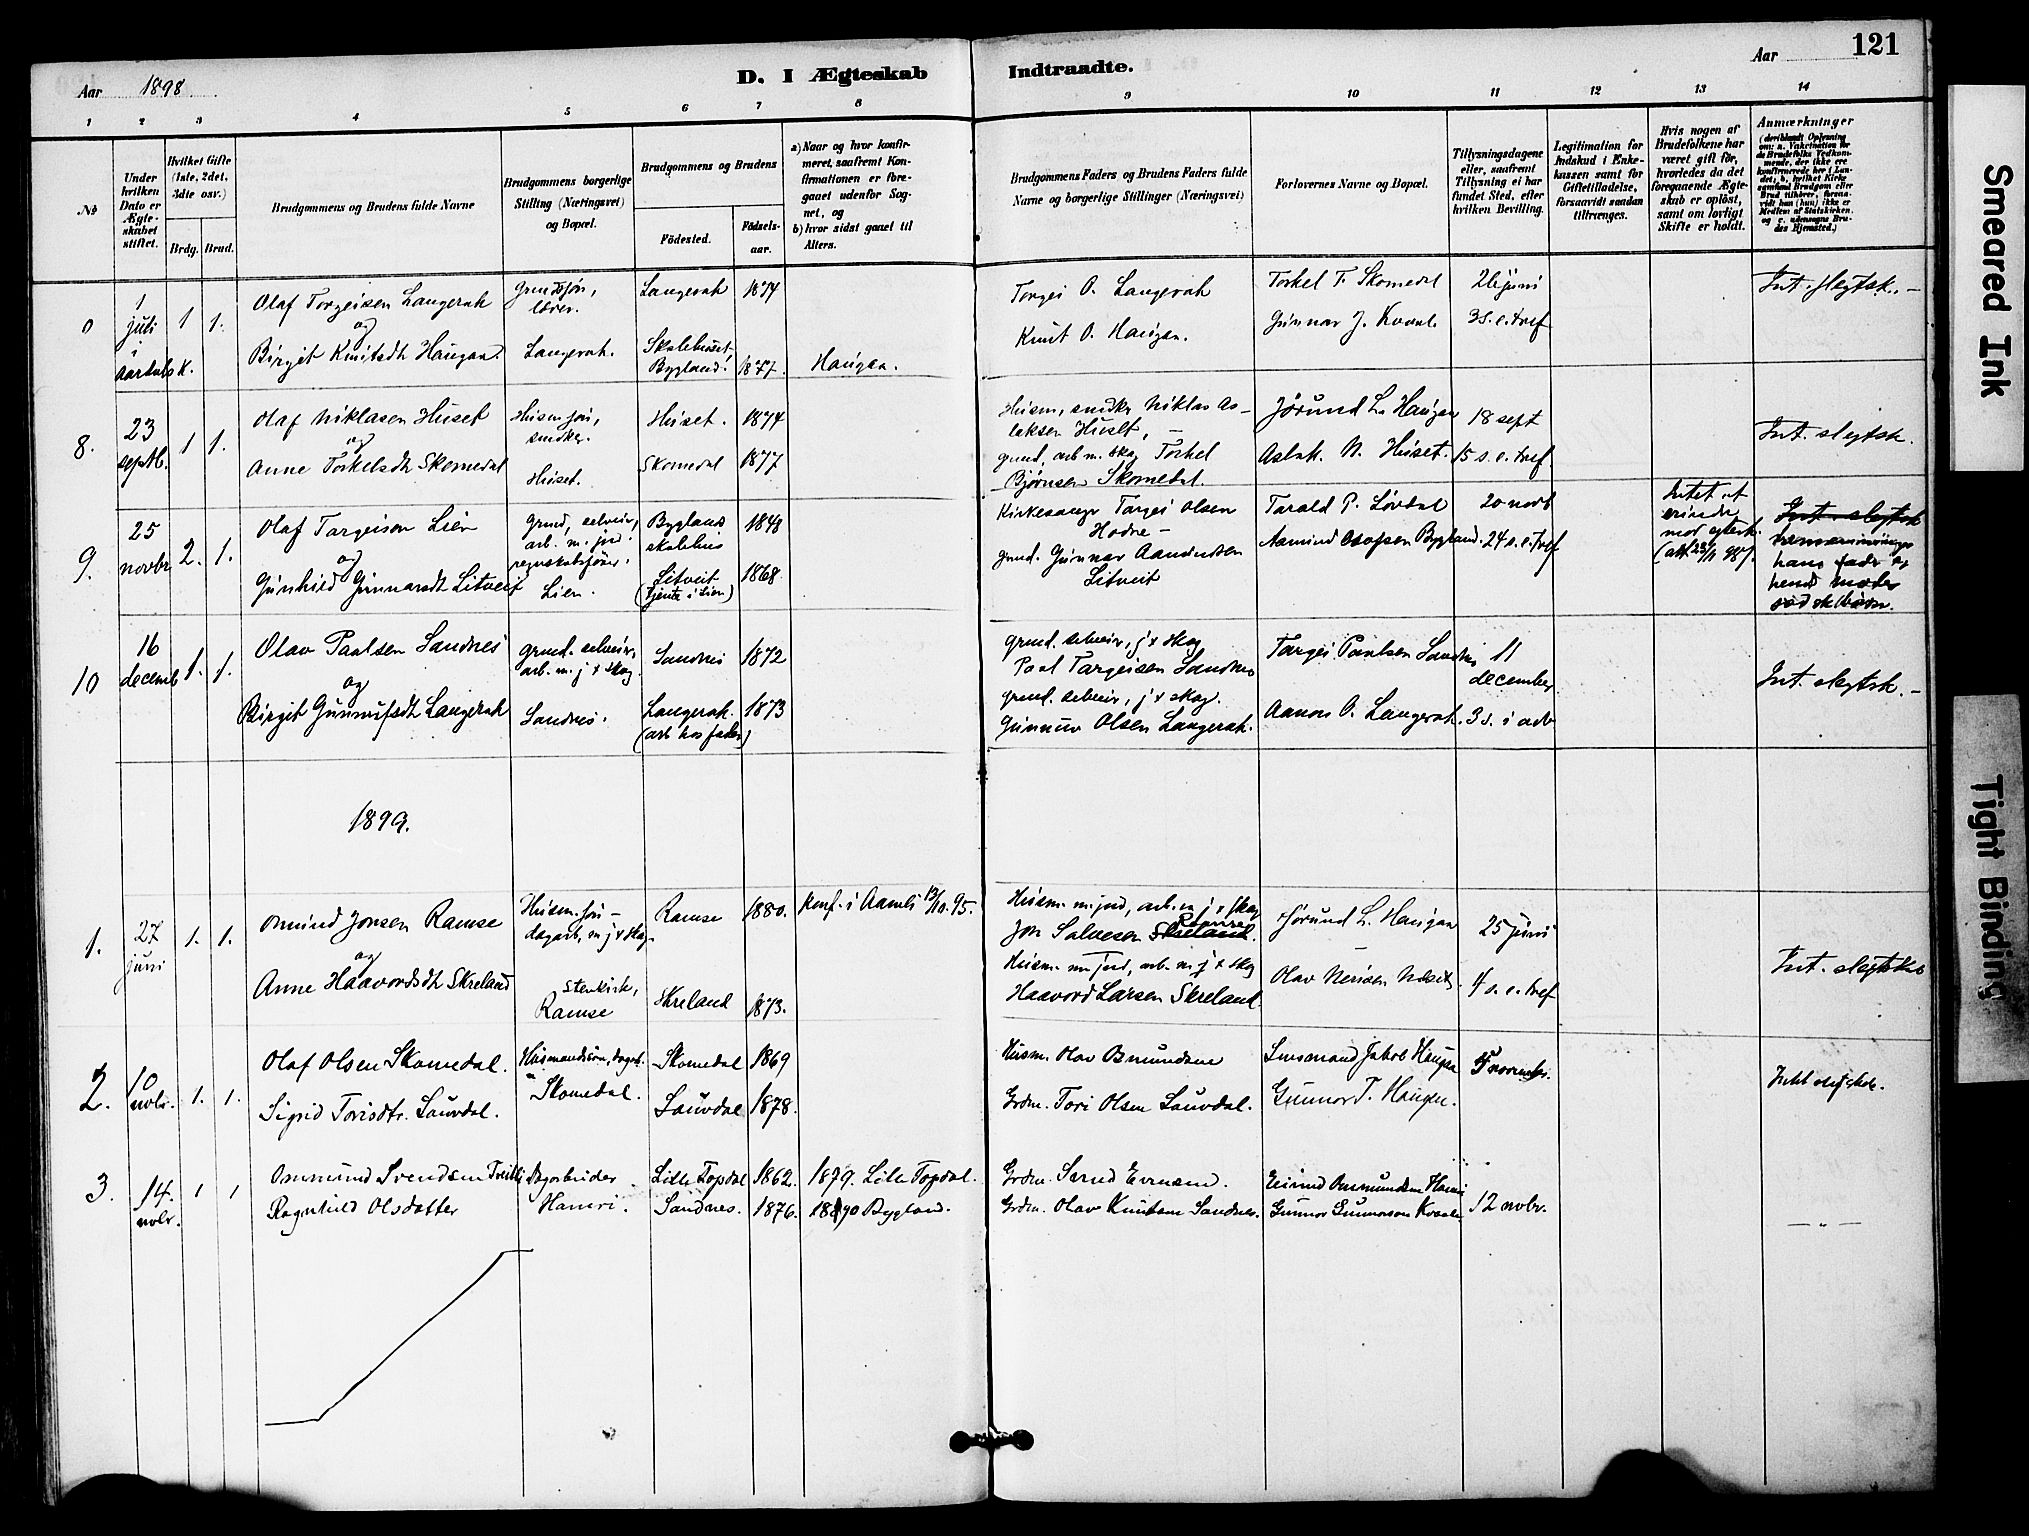 Aar 1898.
D. I Ægteskab Indtraadte.
Aar 121
1 2 3 4 5 6 7 8 9 10 11 12 13 14
№
Under hvilken Dato er Ægteskabet stiftet.
Hvilket Gifte (1ste, 2det, 3die osv.)
Brdg. Brud.
Brudgommens og Brudens fulde Navne
Brudgommens borgerlige Stilling (Næringsvei) og Bopæl.
Brudgommens og Brudens
Födested. Födselsaar.
a) Naar og hvor konfirmeret, saafremt Konfirmationen er foregaaet udenfor Sognet, og
b) hvor sidst gaaet til Alters.
Brudgommens Faders og Brudens Faders fulde Navne og borgerlige Stillinger (Næringsvei)
Forlovernes Navne og Bopæl.
Tillysningsdagene eller, saafremt Tillysning ei har fundet Sted, efter hvilken Bevilling.
Legitimation for Indskud i Enkekassen samt for Giftetilladelse, forsaavidt saadan tiltrænges.
Hvis nogen af Brudefolkene har været gift för, hvorledes da det foregaaende Ægteskab er oplöst, samt om lovligt Skifte er holdt.
Anmærkninger
0 1 juli i Aardals k. 1 1.
Olaf Torgeisen Langerak
og
Birgit Knutsdt Haugaa.
lærer.
Langerak.
Langerak 1874
Skolehuset, Bygland. 1877.
Haugen.
Torgei O. Langerak
Knut O. Haugen.
Torkel T. Skomedal
Gunnar J. Kvaale
26 juni
3 s. e. tref
Int. slegtsk. -
8. 23 septb. 1 1.
Olaf Niklasen Huset
og
Anne Torkelsdt Skomedal
snedker.
Huset.
Huset. 1874
Skomedal 1877
Husm, snedkr Niklas Aslaksen Huset, -
grund, arb m. skog Torkel
Bjørnsen Skomedal.
Jørund L. Haugen
Aslak. N. Huset.
18 sept
15 s. e. tref.
Int. slegtsk.
9. 25 novbr 2. 1.
Olaf Targeison Lien
og
Gunhild Gunnarsdt Litveit
Grund, selveier,
arb. m. jord.
regnskabsfører.
Lien.
Byglands skolehus 1848
Litveit (tjente i Lien) 1868
Kirkesanger Targei Olsen
Hodne -
grund. Gunnar Aanundsen
Litveit
Tarald P. Løvdal
Aamund Olofsen Bygland.
20 novb
24 s. e. tref
Intet at erindre mod egtesk.
Int. slegtsk
hans fader og
hend moder
10 16 decemb 1. 1.
Olav Paalsen Sandnes
og
Birgit Gunnufsdt Langerak
grund. selveier,
arb. m. j & skog
Sandnes.
Sandnes 1872
Langerak. (arb hos fader) 1873
grund. selveier, j & skog
Paal Targeisen Sandnes
grund. selveier, j & skog.
Gunnuv Olsen Langerak.
Targei Paulsen Sandnes
Aanon O. Langerak.
11 december
3 s. i adv
Int. slegtsk. -
1899.
1. 27 juni 1. 1.
Omund Jonsen Ramse
og
Anne Haavordsdt Skreland
Ramse
Ramse 1880.
Skreland 1873.
konf. i Aamli 13/10. 95.
Husm. m. jord, arb. m j & skog
Jon Salvesen Skreland. Ramse
Husm. m jord, arb. m. j & skog
Haavord Larsen Skreland.
Jørund L. Haugen
25 juni
4 s. e. tref
Int. slegtsk
2. 10 novbr. 1. 1.
Olaf Olsen Skomedal.
Sigrid Torisdtr. Lauvdal.
Husmandssøn, dagarb.
Skomedal.
Skomedal 1869
Lauvdal 1878.
Husm. Olav Omundsen
Grdm. Tori Olsen Lauvdal.
Jakob Haugen
Gunnar T. Haugen.
5 novembr.
Intet slegtsk.
3. 14. novbr. 1 1
Ommund Svendsen
Ragnhild Olsdatter
Dagarbeider.
Hamri.
Lille Topdal 1862.
Sandnes. 1876.
1879. Lille Topdal.
1890 Bygland.
Grdm. Svend Evensen.
Grdm. Olav Knutsen Sandnes.
Eivind Ommundsen Hamri
Gunnar Gunnarson Kvaale
12 novbr.
— „ —
Smeared Ink
Tight Binding